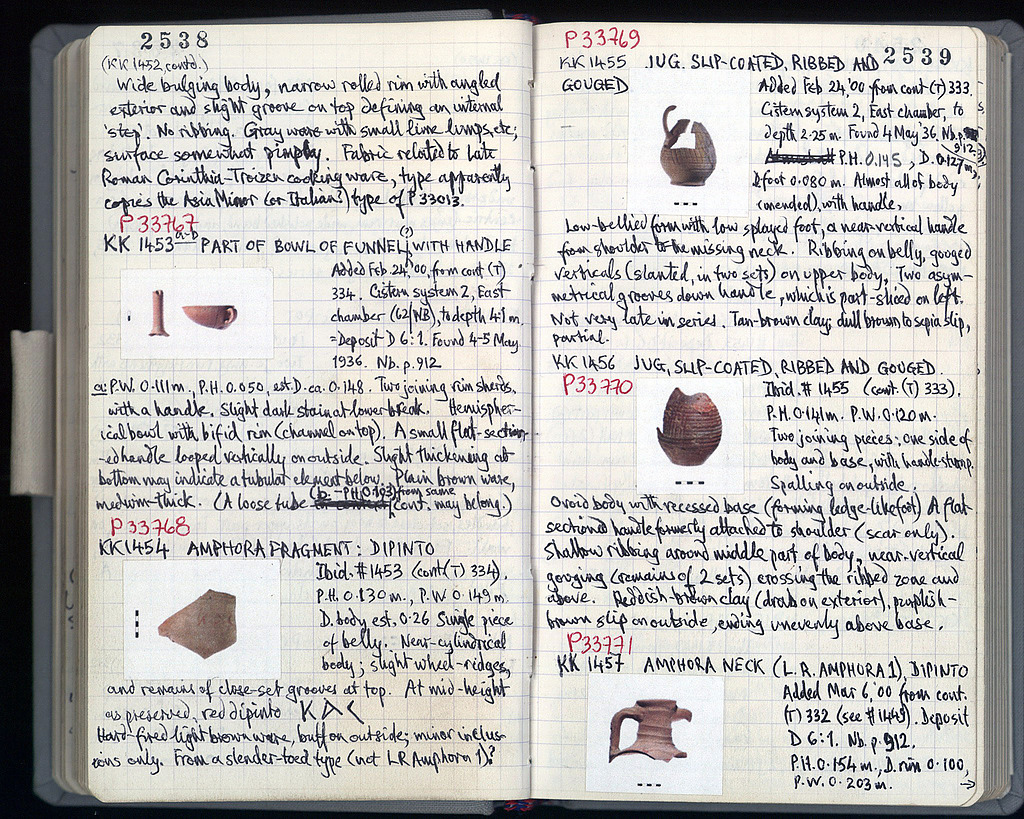 2538
(KK 1452, contd.)
Wide bulging body, narrow rolled rim with angled
exterior and slight groove on top defining an internal
'step'. No ribbing. Gray ware with small lime lumps, etc;
surface somewhat pimply. Fabric related to Late
Roman Corinthia-Troizen cooking ware, type apparently
copies the Asia Minor (or Italian?) type of P 33013.
P 33767
KK 1453 a-b PART OF BOWL OF FUNNEL(?) WITH HANDLE
Added Feb. 24,'00, from cont (T)
334. Cistern system 2, East
chamber (62/NB), to depth 4.1 m.
=Deposit D 6:1. Found 4-5 May
1936. Nb. p. 912
a: P.W. 0.111m, P.H. 0.050, est D. ca. 0.148. Two joining rim sherds,
with a handle. Slight dark stain at lower break. Hemispher-
ical bowl with bifid rim (channel on top). A small flat-section-
-ed handle looped vertically on outside. Slight thickening at
bottom may indicate a tubular element below. Plain brown ware,
medium-thick. (A loose tube (b. - P.H. 0.103) from same cont. may belong.)
P 33768
KK 1454 AMPHORA FRAGMENT: DIPINTO
Ibid. #1453 (cont (T) 334).
P.H. 0.130 m., P.W 0.149 m.
D. body est. 0.26 Single piece
of belly. Near-cylindrical
body; slight wheel-ridges,
and remains of close-set grooves at top. At mid-height
as preserved, red dipinto
Hard-fired light brown ware, buff on outside; minor inclus-
ions only. From a slender-toed type (not LR Amphora 1)?
P 33769
2539
KK 1455 JUG. SLIP-COATED, RIBBED AND
GOUGED
Added Feb 24,'00 from cont (T) 333.
Cistern system 2, East chamber, to
depth 2.25 m. Found 4 May '36, Nb. p.
912
P.H. 0.145, D. 0.127m,
D foot 0.080 m. Almost all of body
(mended), with handle.
Low-bellied form with low splayed foot, a near-vertical handle
from shoulder to the missing neck. Ribbing on belly, gouged
verticals (slanted, in two sets) on upper body. Two asym-
metrical grooves down handle, which is part-sliced on left.
Not very late in series. Tan-brown clay; dull brown to sepia slip,
partial.
KK 1456 JUG, SLIP-COATED, RIBBED AND GOUGED.
P33770
Ibid. #1455 (cont. (T) 333).
P.H. 0.141m. P.W. 0.120 m.
Two joining pieces: one side of
body and base, with handle-stump.
Spalling on outside.
Ovoid body with recessed base (forming ledge-like foot) A flat
sectioned handle formerly attached to shoulder (scar only).
Shallow ribbing around middle part of body, near-vertical
gouging (remains of 2 sets) crossing the ribbed zone and
above. Reddish-brown clay (drab on exterior), purplish-
brown slip on outside, ending unevenly above base.
P33771
KK 1457 AMPHORA NECK (L.R. AMPHORA 1), DIPINTO
Added Mar 6,'00 from cont.
(T) 332 (see #1449). Deposit
D 6:1. Nb. p. 912.
P.H. 0.154 m., D. rim 0.100,
P.W. 0.203 m. →